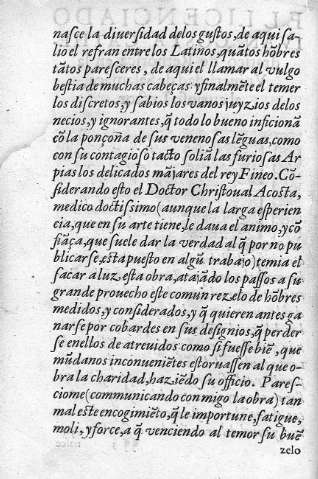 nasce la diuersidad delos gustos, de aqui sa-
lio el refran entre los Latinos, quãtos hõbres
tãtos paresceres, de aqui el llamar al vulgo
bestia de muchas cabeças yfinalmẽte el temer
los discretos, y sabios los vanos juyzios delos
necios, y ignorantes, q̃ todo lo bueno inficionã
cõ la ponçoña de sus venenosas lẽguas, como
con su contagioso tacto soliã las furiosas Ar
pias los delicados mãjares del rey Fineo. Cõ-
siderando esto el Doctor Christoual Acosta,
medico doctissimo (aunque la larga esperien
cia, que en su arte tiene, le daua el animo, y cõ
fiãça, que suele dar la verdad al q̃ por no pu
blicarse, està puesto en algũ trabajo) temia el
sacar a luz esta obra, atajãdo los passos a su
grande prouecho este comun rezelo de hõbres
medidos, y considerados, y q̃ quieren antes ga
narse por cobardes en sus designios, q̃ perder
se enellos de atreuidos como si fuesse biẽ, que
mũdanos inconueniẽtes estoruassen al que o-
bra la charidad, haziẽdo su officio. Pares-
ciome (communicando conmigo la obra) tan
mal este encogimiẽto, q̃ le importune, fatigue,
moli, y force, a q̃ venciendo al temor su buẽ
zelo